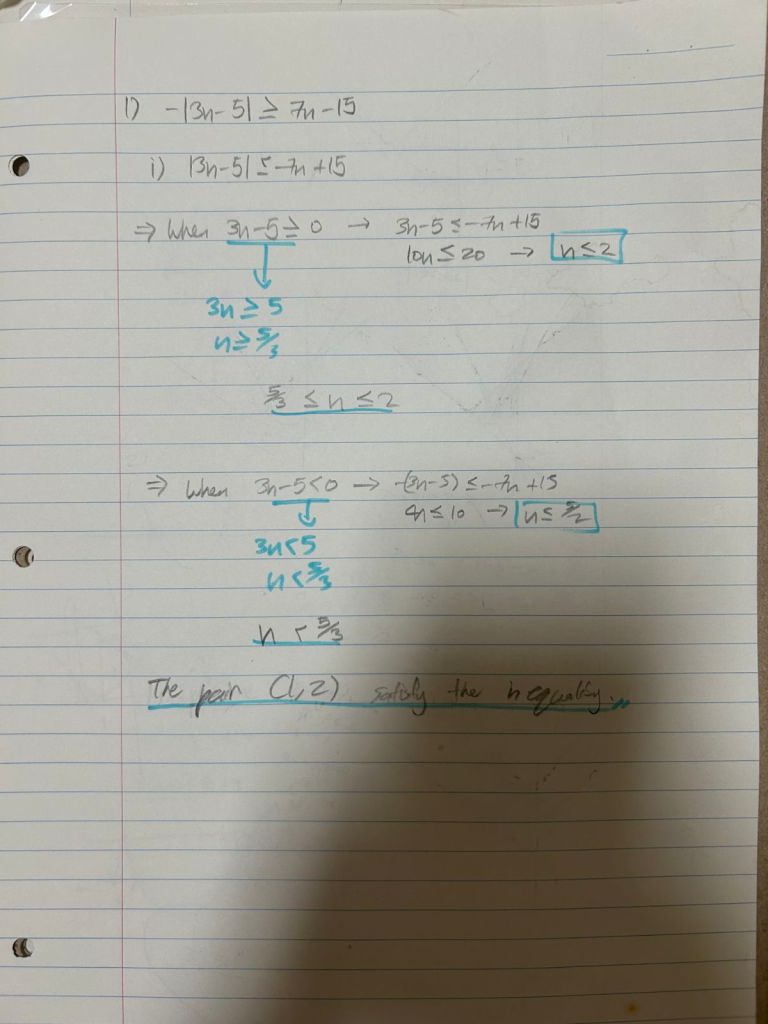 1) -|3n-5| ≥ 7n-15
i) |3n-5| ≤ -7n+15
⇒ When 3n-5 ≥ 0 → 3n-5 ≤ -7n+15
10n ≤ 20 → n ≤ 2
3n ≥ 5
n ≥ 5/3
5/3 ≤ n ≤ 2
⇒ When 3n-5 < 0 → -(3n-5) ≤ -7n+15
4n ≤ 10 → n ≤ 5/2
3n < 5
n < 5/3
n < 5/3
The pair (1,2) satisfy the inequality.